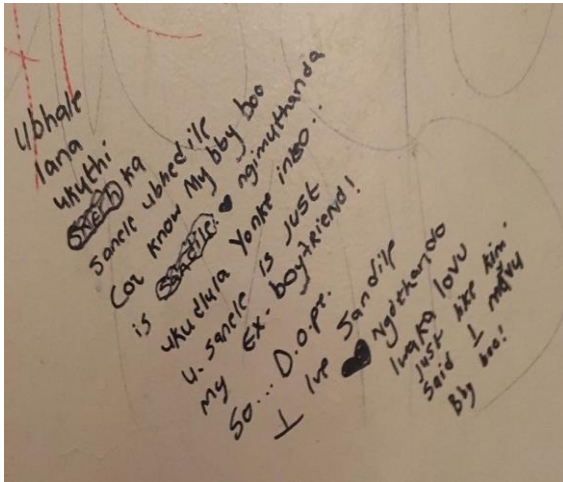 Ubhale
lana
ukuthi
ka
Sanele ubhedile
Coz know My bby boo
is Sandile ngimuthanda
ukudlula Yonke into..
U. Sanele is just
My Ex- boyfriend!
So... D.o.p.e.
I lve Sandile
Ngothando
lwaka lovu
Just like Kim
Said I
Bby boo!